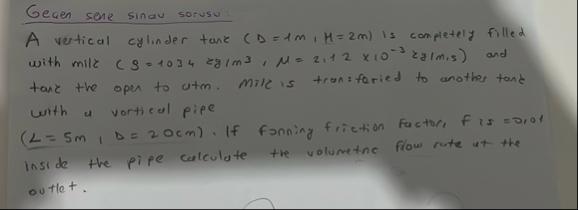 Geçen sene sınav sorusu:
A vertical cylinder tank (D=1m, H=2m) is completely filled
with milk (ρ=1034 kg/m³, μ= 2,12 x10⁻³ kg/m.s) and
tank the open to atm. Milk is transfaried to another tank
with a vertical pipe
(L= 5m, D= 20cm). If fanning friction factor, f is =0,01
inside the pipe calculate the volumetric flow rate at the
outlet.